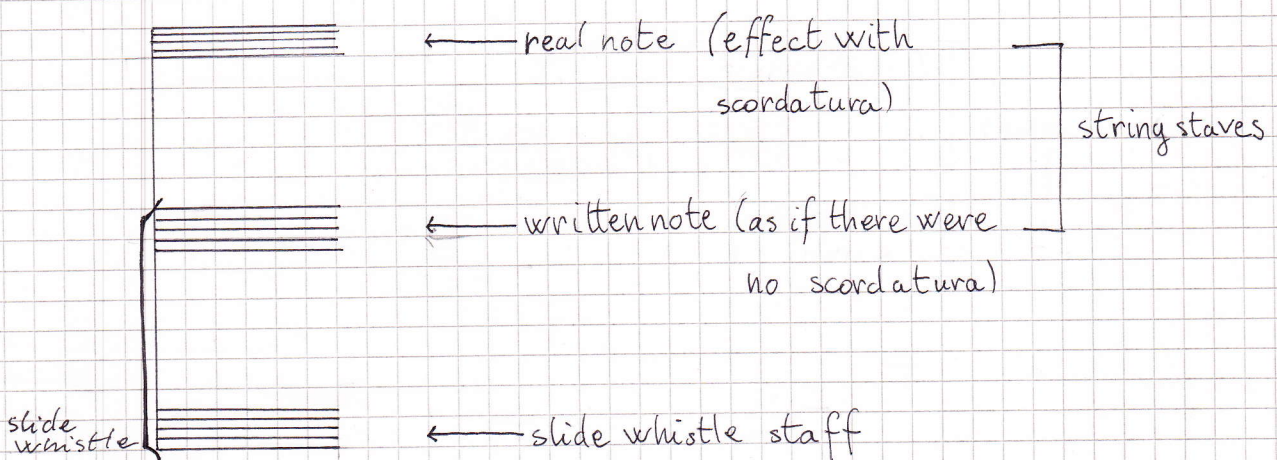 real note (effect with
scordatura)
string staves
written note (as if there were
no scordatura)
slide
whistle
slide whistle staff